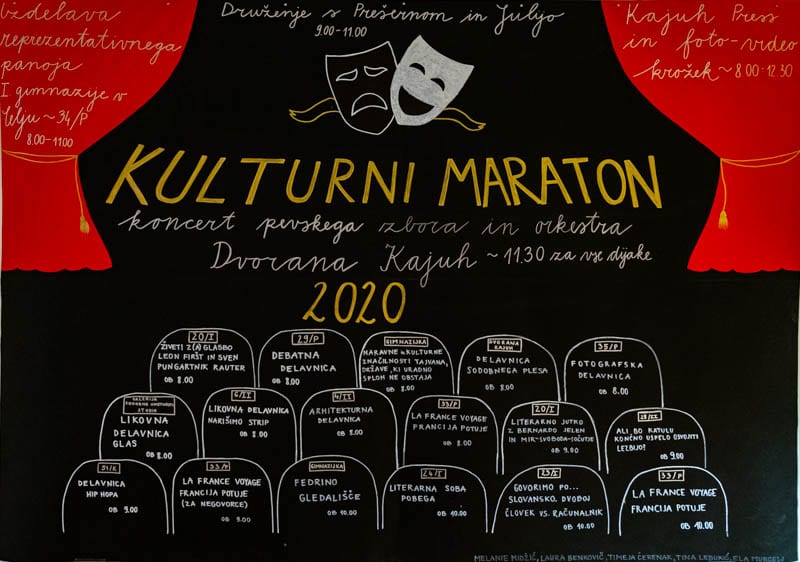 Izdelava
reprezentativnega
panoja
I gimnazije v
Celju ~ 34/P
8.00-11.00
Druženje s Prešernom in Julijo
9.00-11.00
Kajuh Press
in foto-video
krožek ~ 8.00-12.30
KULTURNI MARATON
koncert pevskega zbora in orkestra
Dvorana Kajuh ~ 11.30 za vse dijake
2020
20/I
ŽIVETI Z(A) GLASBO
LEON FIRŠT IN SVEN
PUNGARTNIK RAUTER
OB 8.00
29/P
DEBATNA
DELAVNICA
OB 8.00
GIMNAZIJKA
NARAVNE IN KULTURNE
ZNAČILNOSTI TAJVANA,
DRŽAVE, KI URADNO
SPLOH NE OBSTAJA
OB 8.00
DVORANA
KAJUH
DELAVNICA
SODOBNEGA PLESA
OB 8.00
35/P
FOTOGRAFSKA
DELAVNICA
OB 8.00
GALERIJA
SODOBNE UMETNOSTI
LIKOVNA
DELAVNICA
GLAS
OB 8.00
6/II
LIKOVNA DELAVNICA
NARIŠIMO STRIP
OB 8.00
4/II
ARHITEKTURNA
DELAVNICA
OB 8.00
33/P
LA FRANCE VOYAGE
FRANCIJA POTUJE
OB 8.00
20/I
LITERARNO JUTRO
Z BERNARDO JELEN
IN MIR-SVOBODA-SOČUTJE
OB 9.00
ALI BO KATULU
KONČNO USPELO OSVOJITI
LEZBIJO?
OB 9.00
31/K
DELAVNICA
HIP HOPA
OB 9.00
33/P
LA FRANCE VOYAGE
FRANCIJA POTUJE
(ZA NEGOVORCE)
OB 9.00
GIMNAZIJKA
FEDRINO
GLEDALIŠČE
OB 10.00
24/I
LITERARNA SOBA
POBEGA
OB 10.00
23/I
GOVORIMO PO...
SLOVANSKO. DVOBOJ
ČLOVEK VS. RAČUNALNIK
OB 10.00
33/P
LA FRANCE VOYAGE
FRANCIJA POTUJE
OB 10.00
MELANIE MIDŽIĆ, LAURA BENKOVIČ, TIMEJA ČERENAK, TINA LEBURIČ, ELA MURCELJ